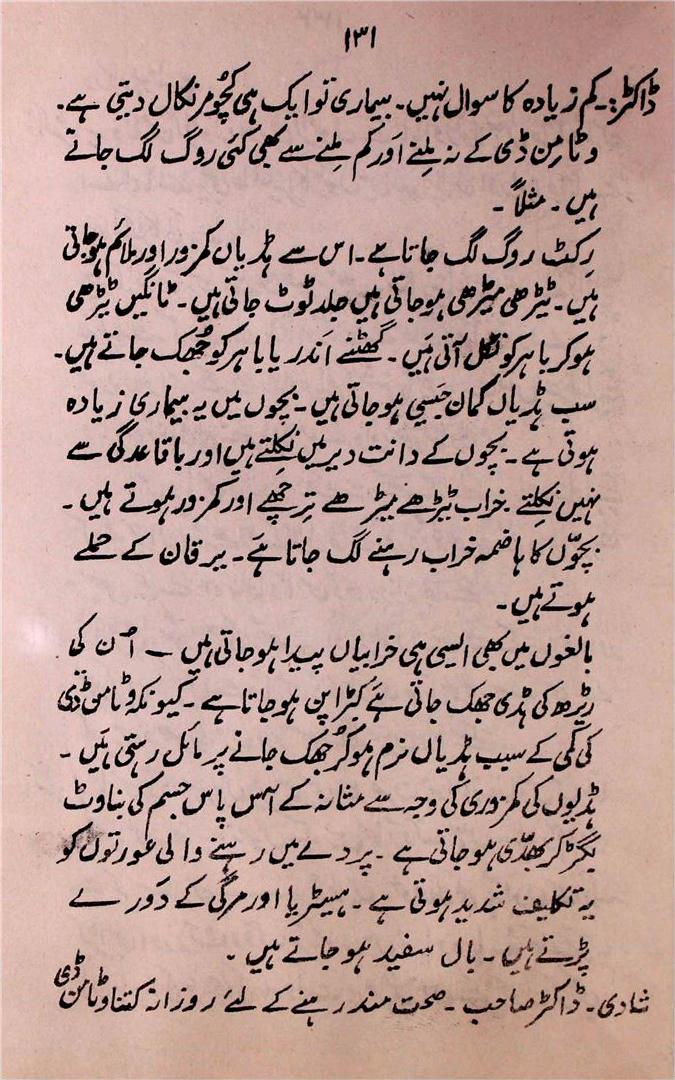 ۱۳۱
ڈاکٹر:۔ کم زیادہ کا سوال نہیں۔ بیماری تو ایک ہی کچُومر نکال دیتی ہے۔
وٹامِن ڈی کے نہ مِلنے اَور کم مِلنے سے بھی کئی روگ لگ جاتے
ہیں۔ مثلاً۔
رِکٹ روگ لگ جاتا ہے۔ اس سے ہڈیاں کمزور اور ملائم ہو جاتی
ہیں۔ ٹیڑھی میڑھی ہو جاتی ہیں جلد ٹوٹ جاتی ہیں۔ ٹانگیں ٹیڑھی
ہو کر باہر کو نکل آتی ہَیں۔ گھٹنے اَندر یا باہر کو جُھک جاتے ہیں۔
سب ہڈیاں کمان جَیسی ہو جاتی ہیں۔ بچوں میں یہ بیماری زیادہ
ہوتی ہے۔ بچوں کے دانت دیر میں نکلتے ہیں اور باقاعدگی سے
نہیں نکلتے۔ خراب ٹیڑھے میڑھے تِرچھے اور کمزور ہوتے ہیں۔
بچّوں کا ہاضمہ خراب رہنے لگ جاتا ہَے۔ یرقان کے حملے
ہوتے ہیں۔
بالغوں میں بھی ایسی ہی خرابیاں پیدا ہو جاتی ہیں — اُن کی
ریڑھ کی ہڈی جھک جاتی ہَے کبڑا پن ہو جاتا ہے۔ کیونکہ وٹامن ڈی
کی کمی کے سبب ہڈیاں نرم ہو کر جُھک جانے پر مائل رہتی ہَیں۔
ہڈیوں کی کمزوری کی وجہ سے مثانہ کے آس پاس جسم کی بناوٹ
بگڑ کر بھدّی ہو جاتی ہے۔ پردے میں رہنے والی عورتوں کو
یہ تکلیف شدید ہوتی ہے۔ ہسٹریا اور مرگی کے دَورے
پڑتے ہیں۔ بال سفید ہو جاتے ہیں۔
شادی۔ ڈاکٹر صاحب۔ صحت مند رہنے کے لئے روزانہ کتنا وٹامن ڈی